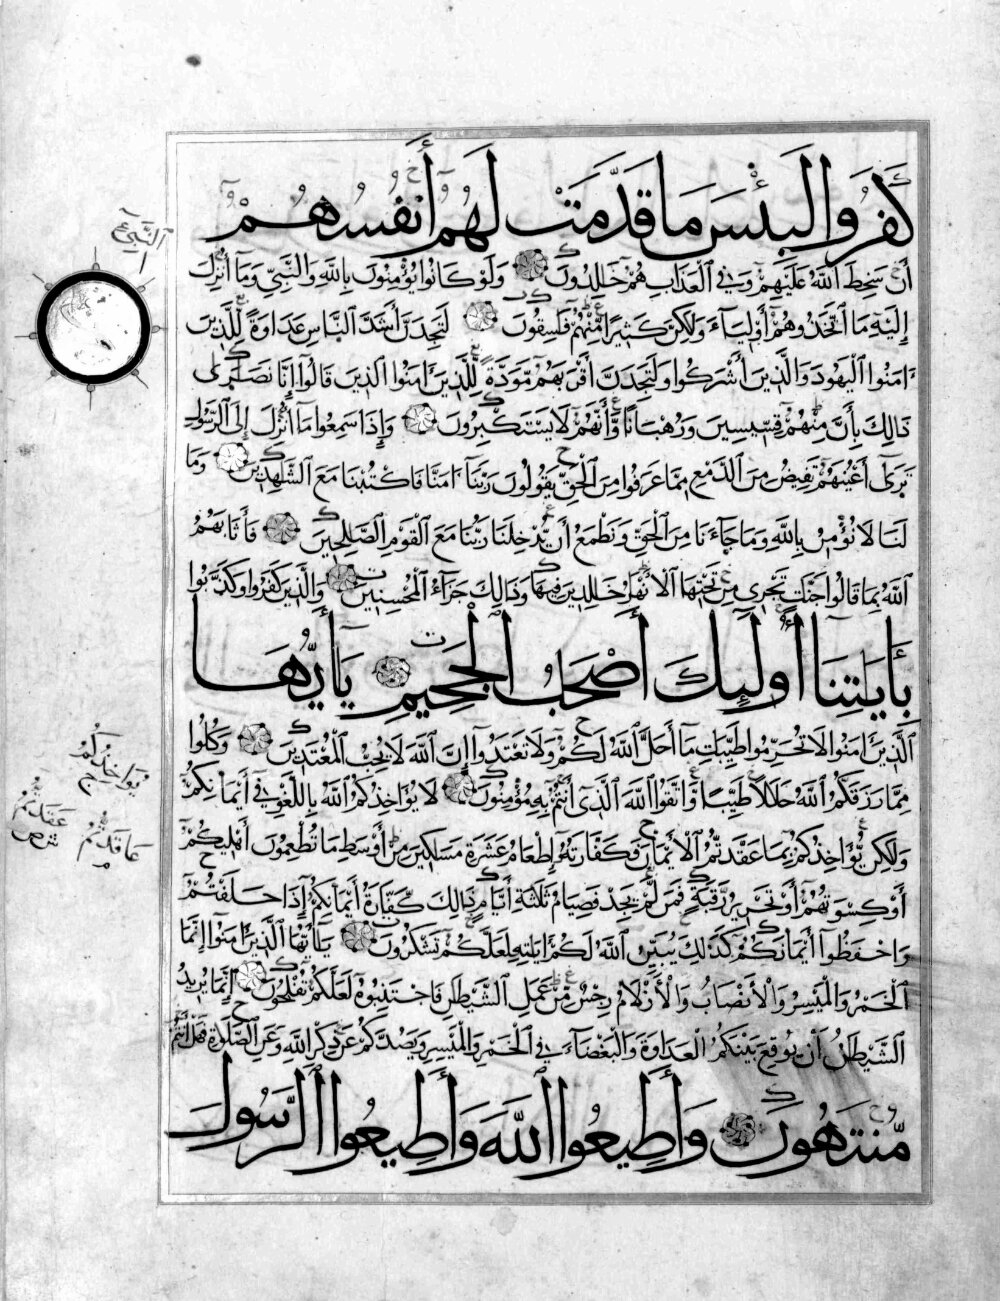 كَفَرُوا لَبِئْسَ مَا قَدَّمَتْ لَهُمْ أَنْفُسُهُمْ
أَنْ سَخِطَ ٱللَّهُ عَلَيْهِمْ وَفِي ٱلْعَذَابِ هُمْ خَالِدُونَ وَلَوْ كَانُوا يُؤْمِنُونَ بِاللَّهِ وَالنَّبِيِّ وَمَا أُنْزِلَ
إِلَيْهِ مَا ٱتَّخَذُوهُمْ أَوْلِيَاءَ وَلَٰكِنَّ كَثِيرًا مِنْهُمْ فَاسِقُونَ لَتَجِدَنَّ أَشَدَّ ٱلنَّاسِ عَدَاوَةً لِلَّذِينَ
ءَامَنُوا ٱلْيَهُودَ وَالَّذِينَ أَشْرَكُوا وَلَتَجِدَنَّ أَقْرَبَهُمْ مَوَدَّةً لِلَّذِينَ ءَامَنُوا ٱلَّذِينَ قَالُوا إِنَّا نَصَٰرَىٰ
ذَٰلِكَ بِأَنَّ مِنْهُمْ قِسِّيسِينَ وَرُهْبَانًا وَأَنَّهُمْ لَا يَسْتَكْبِرُونَ وَإِذَا سَمِعُوا مَا أُنْزِلَ إِلَى ٱلرَّسُولِ
تَرَىٰ أَعْيُنَهُمْ تَفِيضُ مِنَ ٱلدَّمْعِ مِمَّا عَرَفُوا مِنَ ٱلْحَقِّ يَقُولُونَ رَبَّنَا ءَامَنَّا فَاكْتُبْنَا مَعَ ٱلشَّاهِدِينَ وَمَا
لَنَا لَا نُؤْمِنُ بِاللَّهِ وَمَا جَاءَنَا مِنَ ٱلْحَقِّ وَنَطْمَعُ أَنْ يُدْخِلَنَا رَبُّنَا مَعَ ٱلْقَوْمِ ٱلصَّالِحِينَ فَأَثَابَهُمُ
ٱللَّهُ بِمَا قَالُوا جَنَّٰتٍ تَجْرِي مِنْ تَحْتِهَا ٱلْأَنْهَٰرُ خَالِدِينَ فِيهَا وَذَٰلِكَ جَزَاءُ ٱلْمُحْسِنِينَ وَالَّذِينَ كَفَرُوا وَكَذَّبُوا
بِـَٔايَٰتِنَا أُولَٰئِكَ أَصْحَٰبُ ٱلْجَحِيمِ يَا أَيُّهَا
ٱلَّذِينَ ءَامَنُوا لَا تُحَرِّمُوا طَيِّبَاتِ مَا أَحَلَّ ٱللَّهُ لَكُمْ وَلَا تَعْتَدُوا إِنَّ ٱللَّهَ لَا يُحِبُّ ٱلْمُعْتَدِينَ وَكُلُوا
مِمَّا رَزَقَكُمُ ٱللَّهُ حَلَٰلًا طَيِّبًا وَٱتَّقُوا ٱللَّهَ ٱلَّذِي أَنْتُمْ بِهِ مُؤْمِنُونَ لَا يُؤَاخِذُكُمُ ٱللَّهُ بِاللَّغْوِ فِي أَيْمَانِكُمْ
وَلَٰكِنْ يُؤَاخِذُكُمْ بِمَا عَقَّدْتُمُ ٱلْأَيْمَانَ فَكَفَّارَتُهُ إِطْعَامُ عَشَرَةِ مَسَٰكِينَ مِنْ أَوْسَطِ مَا تُطْعِمُونَ أَهْلِيكُمْ
أَوْ كِسْوَتُهُمْ أَوْ تَحْرِيرُ رَقَبَةٍ فَمَنْ لَمْ يَجِدْ فَصِيَامُ ثَلَٰثَةِ أَيَّامٍ ذَٰلِكَ كَفَّارَةُ أَيْمَانِكُمْ إِذَا حَلَفْتُمْ
وَاحْفَظُوا أَيْمَانَكُمْ كَذَٰلِكَ يُبَيِّنُ ٱللَّهُ لَكُمْ ءَايَٰتِهِ لَعَلَّكُمْ تَشْكُرُونَ يَا أَيُّهَا ٱلَّذِينَ ءَامَنُوا إِنَّمَا
ٱلْخَمْرُ وَالْمَيْسِرُ وَالْأَنْصَابُ وَالْأَزْلَامُ رِجْسٌ مِنْ عَمَلِ ٱلشَّيْطَٰنِ فَاجْتَنِبُوهُ لَعَلَّكُمْ تُفْلِحُونَ إِنَّمَا يُرِيدُ
ٱلشَّيْطَٰنُ أَنْ يُوقِعَ بَيْنَكُمُ ٱلْعَدَاوَةَ وَالْبَغْضَاءَ فِي ٱلْخَمْرِ وَالْمَيْسِرِ وَيَصُدَّكُمْ عَنْ ذِكْرِ ٱللَّهِ وَعَنِ ٱلصَّلَوٰةِ فَهَلْ أَنْتُمْ
مُنْتَهُونَ وَأَطِيعُوا ٱللَّهَ وَأَطِيعُوا ٱلرَّسُولَ
ٱلنَّبِيءِ
يُوَاخِذُكُمُ
عَقَدْتُمُ
عَاقَدْتُمُ